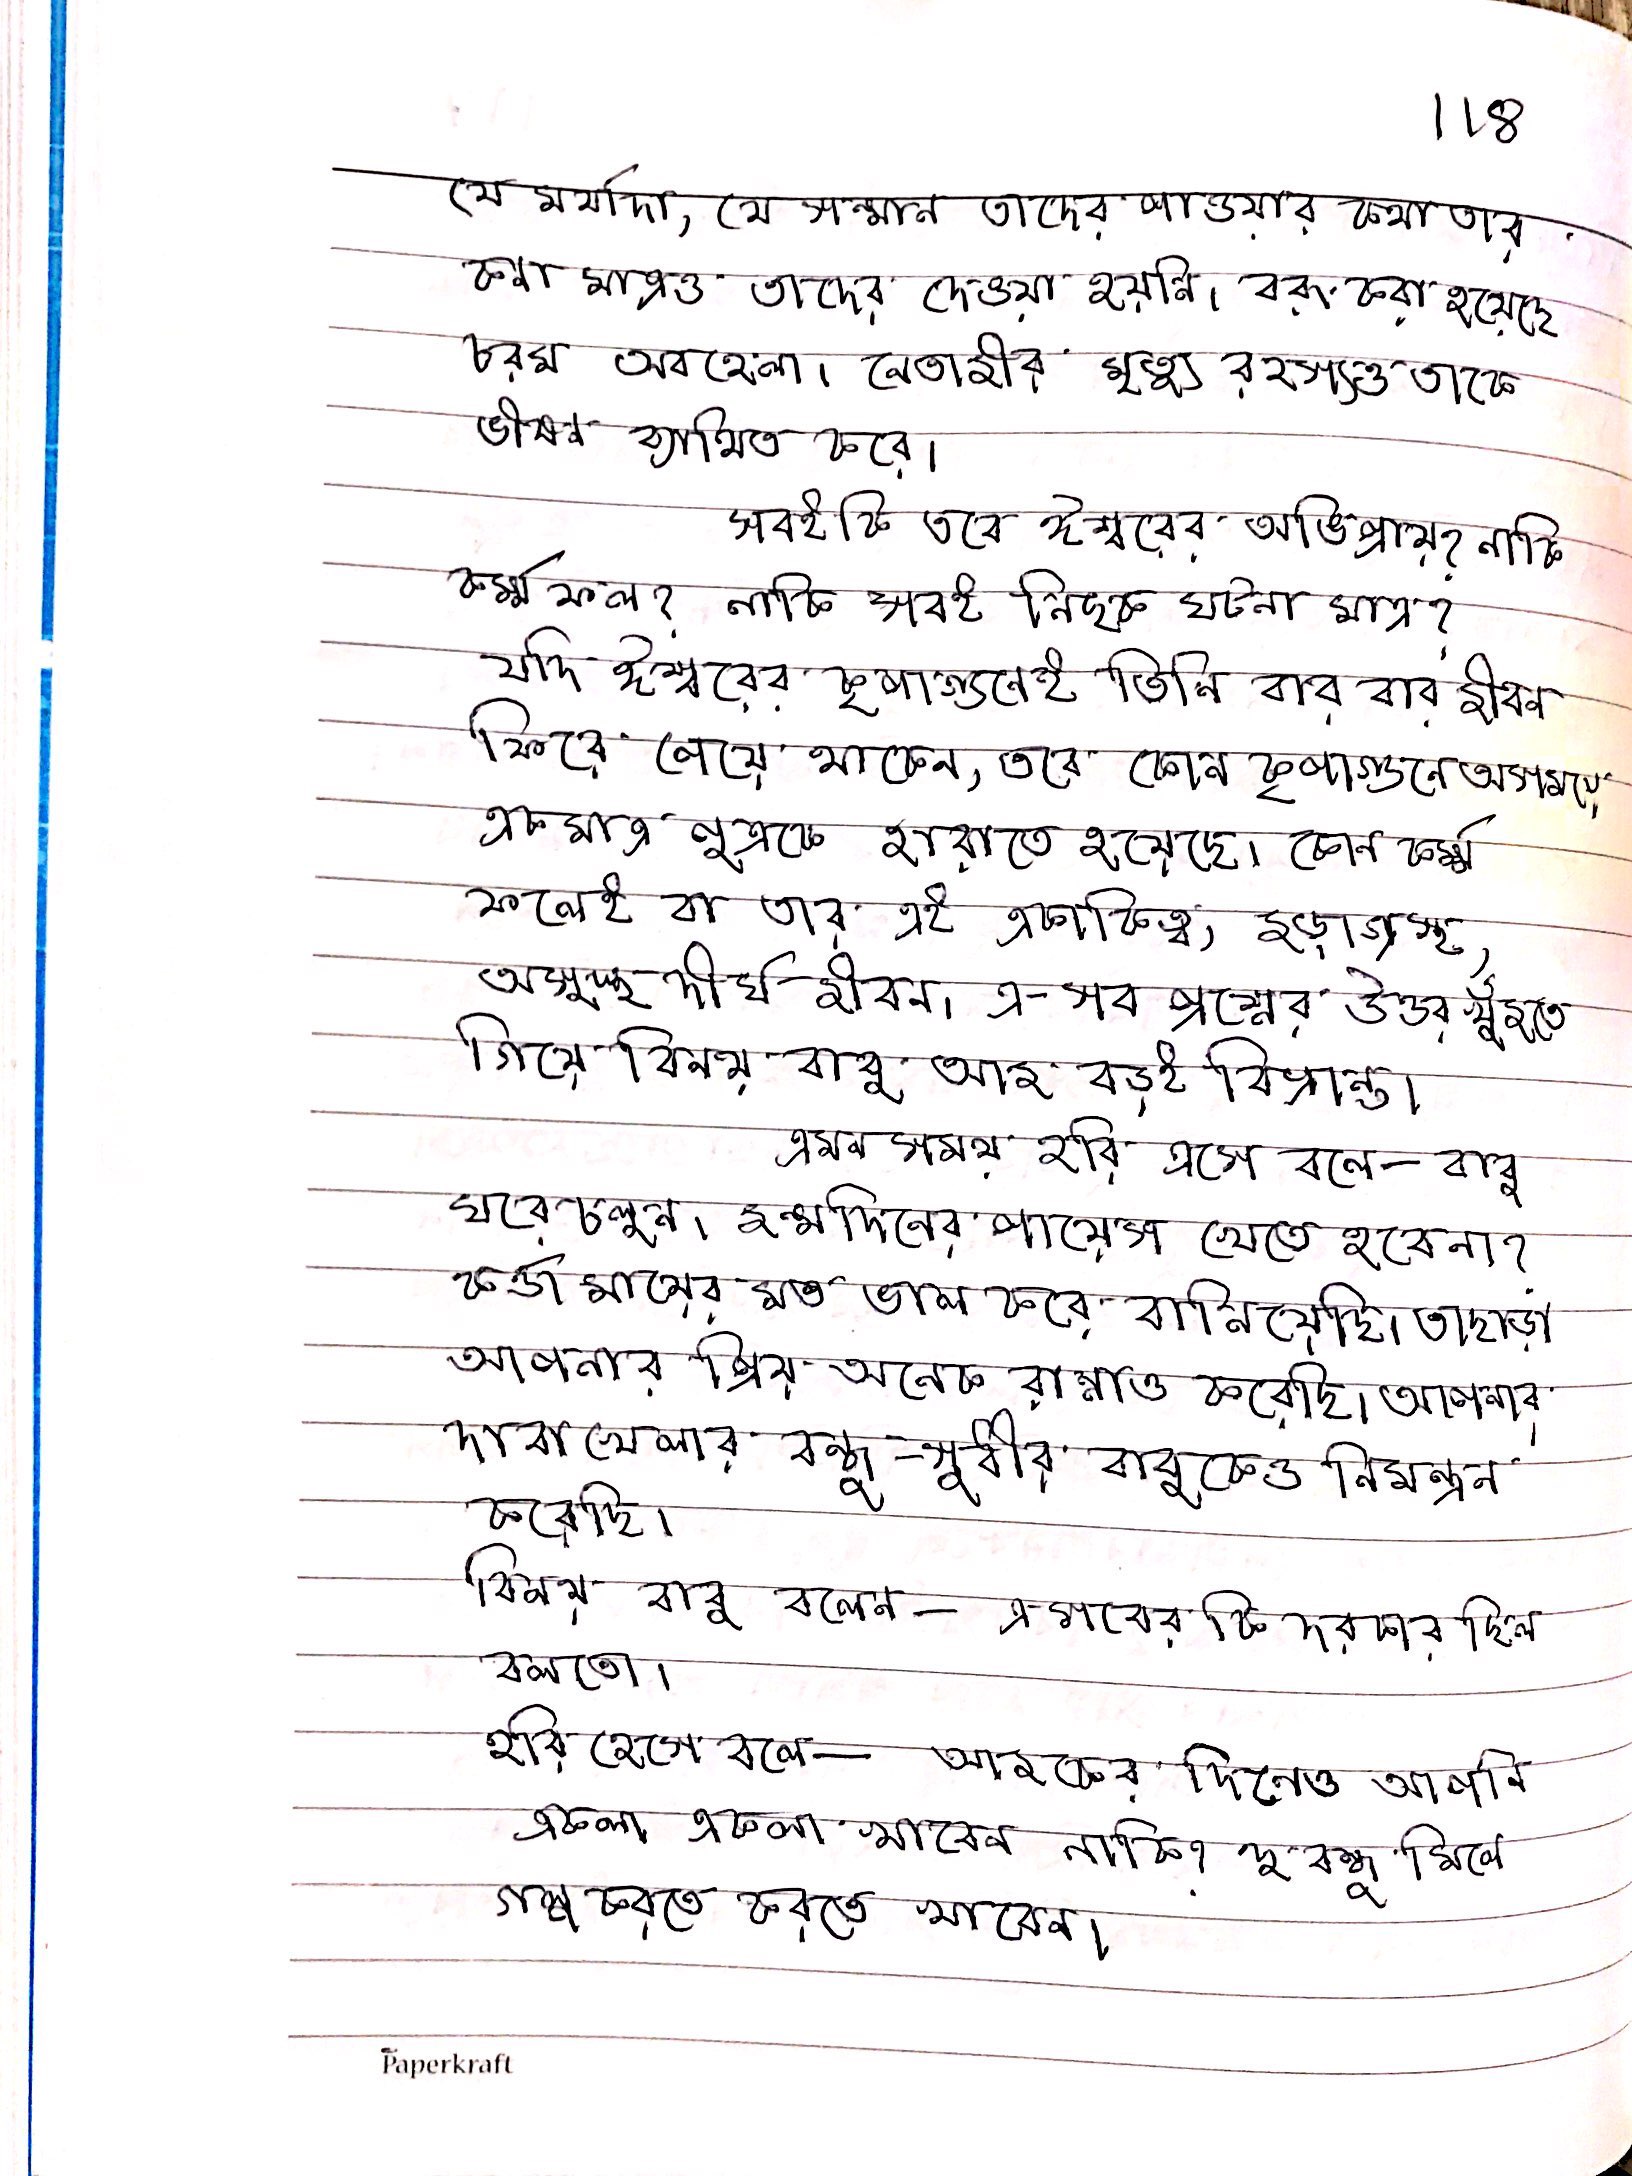 118
যে মর্যাদা, যে সন্মান তাদের পাওয়ার কথা তার
কনা মাত্রও তাদের দেওয়া হয়নি। বরং করা হয়েছে
চরম অবহেলা। নেতাজীর মৃত্যু রহস্যও তাকে
ভীষন ব্যাথিত করে।
সবই কি তবে ঈশ্বরের অভিপ্রায়? নাকি
কর্ম্মফল? নাকি সবই নিছক ঘটনা মাত্র?
যদি ঈশ্বরের কৃপাগুনেই তিনি বার বার জীবন
ফিরে পেয়ে থাকেন, তবে কোন কৃপাগুনে অসময়ে
একমাত্র পুত্রকে হারাতে হয়েছে। কোন কর্ম্ম
ফলেই বা তার এই একাকিত্ব, জড়াগ্রস্থ,
অসুস্থ দীর্ঘ জীবন। এ-সব প্রশ্নের উত্তর খুঁজতে
গিয়ে বিনয় বাবু আজ বড়ই বিভ্রান্ত।
এমন সময় হরি এসে বলে— বাবু
ঘরে চলুন। জন্মদিনের পায়েস খেতে হবেনা?
কর্ত্তা মায়ের মত ভাল করে বানিয়েছি। তাছাড়া
আপনার প্রিয় অনেক রান্নাও করেছি। আপনার
দাবা খেলার বন্ধু -সুবীর বাবুকেও নিমন্ত্রন
করেছি।
বিনয় বাবু বলেন— এসবের কি দরকার ছিল
বলতো।
হরি হেসে বলে— আজকের দিনেও আপনি
একলা একলা খাবেন নাকি? দু বন্ধু মিলে
গল্প করতে করতে খাবেন।
Paperkraft